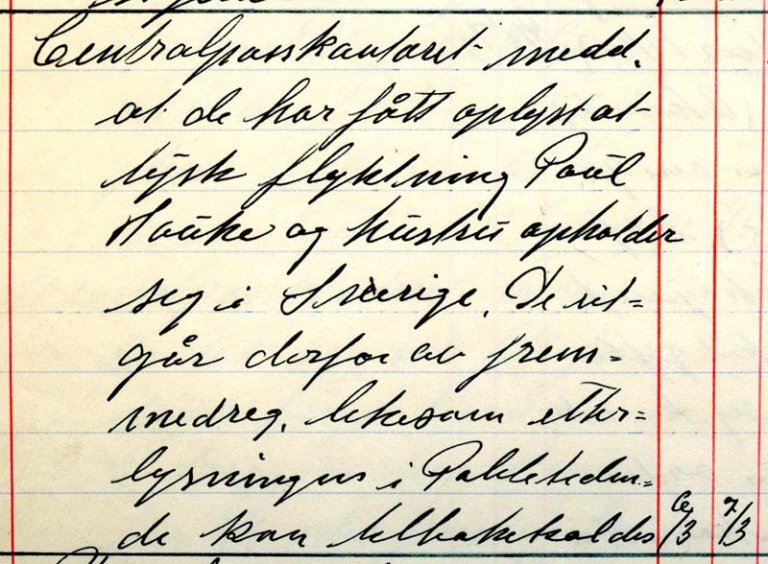 Centralpasskontoret medd.
at de har fått oplyst at
tysk flyktning Paul
Hauke og hustru opholder
seg i Sverige. De ut=
går derfor av frem=
medreg. likesom etter=
lysningen i Polititiden=
de kan tilbakekaldes 6/3 7/3